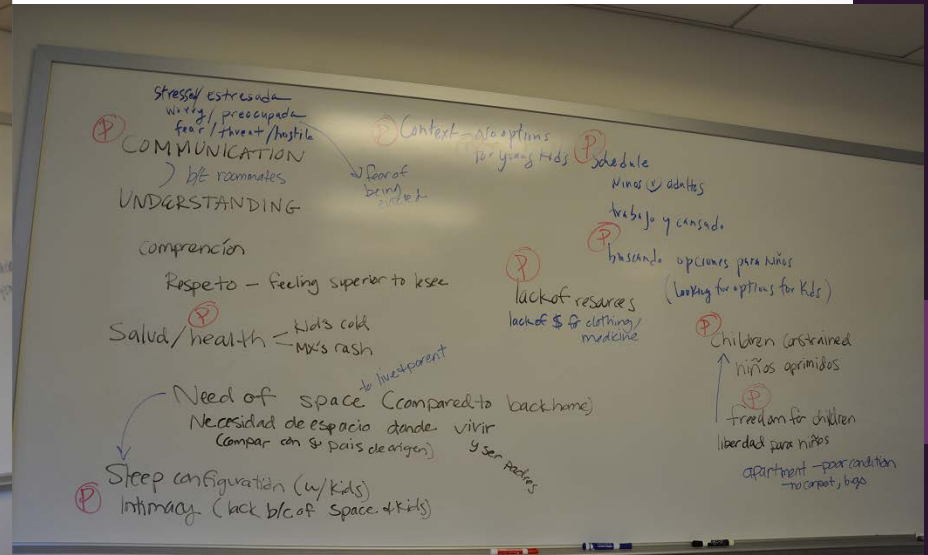 stressed/estresada
worry/preocupada
fear/threat/hostile
P COMMUNICATION
b/t roommates
UNDERSTANDING
fear of
being
comprención
Respeto - feeling superior to lesee
P
Salud/health - kid's cold
- MX's rash
to live+parent
Need of space (compared to back home)
Necesidad de espacio donde vivir
(compar con su pais de origen)
y ser Padres
Sleep configuration (w/kids)
P Intimacy (lack b/c of space & kids)
P Context - No options
for young kids
P Schedule
Ninos y adultos
trabajo y cansado
P buscando opciones para Niños
(Looking for options for Kids)
P
lack of resources
lack of $ for clothing/
medicine
P Children constrained
niños oprimidos
P
freedom for children
liberdad para niños
apartment - poor condition
- no carpet, bugs